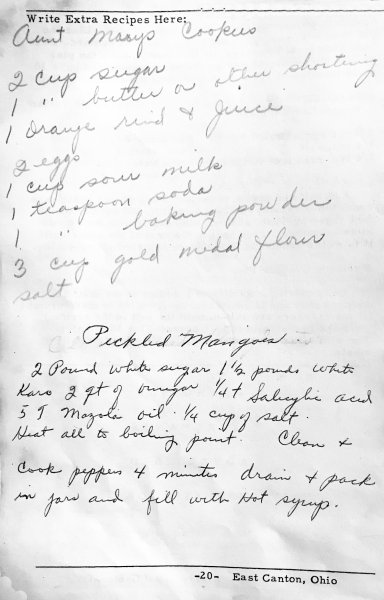 Write Extra Recipes Here:
Aunt Marys Cookies
2 cup sugar
1 " butter or other shortening
1 Orange rind & juice
2 eggs
1 cup sour milk
1 teaspoon soda
1 " baking powder
3 cup gold medal flour
salt
Pickled Mangoes
2 Pound white sugar 1 1/2 pounds white
Karo 2 qt of vinegar 1/4 t Salicylic acid
5 T Mazola oil 1/4 cup of salt
Heat all to boiling point. Clean &
Cook peppers 4 minutes drain & pack
in jars and fill with Hot syrup.
-20- East Canton, Ohio